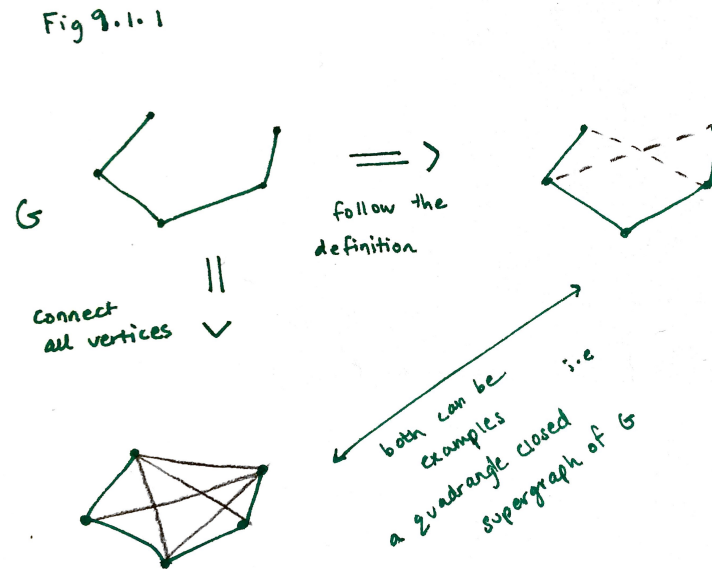 Fig 9.1.1
G
follow the
definition
connect
all vertices
both can be i.e
examples
a quadrangle closed
supergraph of G